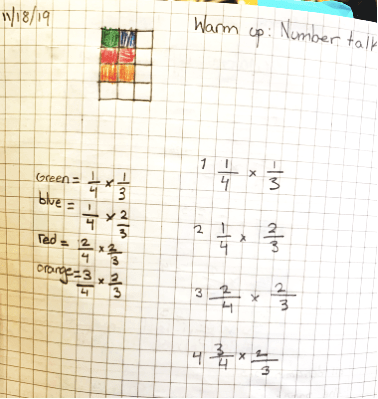 11/18/19
Warm up: Number talk
Green = 1/4 × 1/3
blue = 1/4 × 2/3
red = 2/4 × 2/3
orange = 3/4 × 2/3
1 1/4 × 1/3
2 1/4 × 2/3
3 2/4 × 2/3
4 3/4 × 2/3